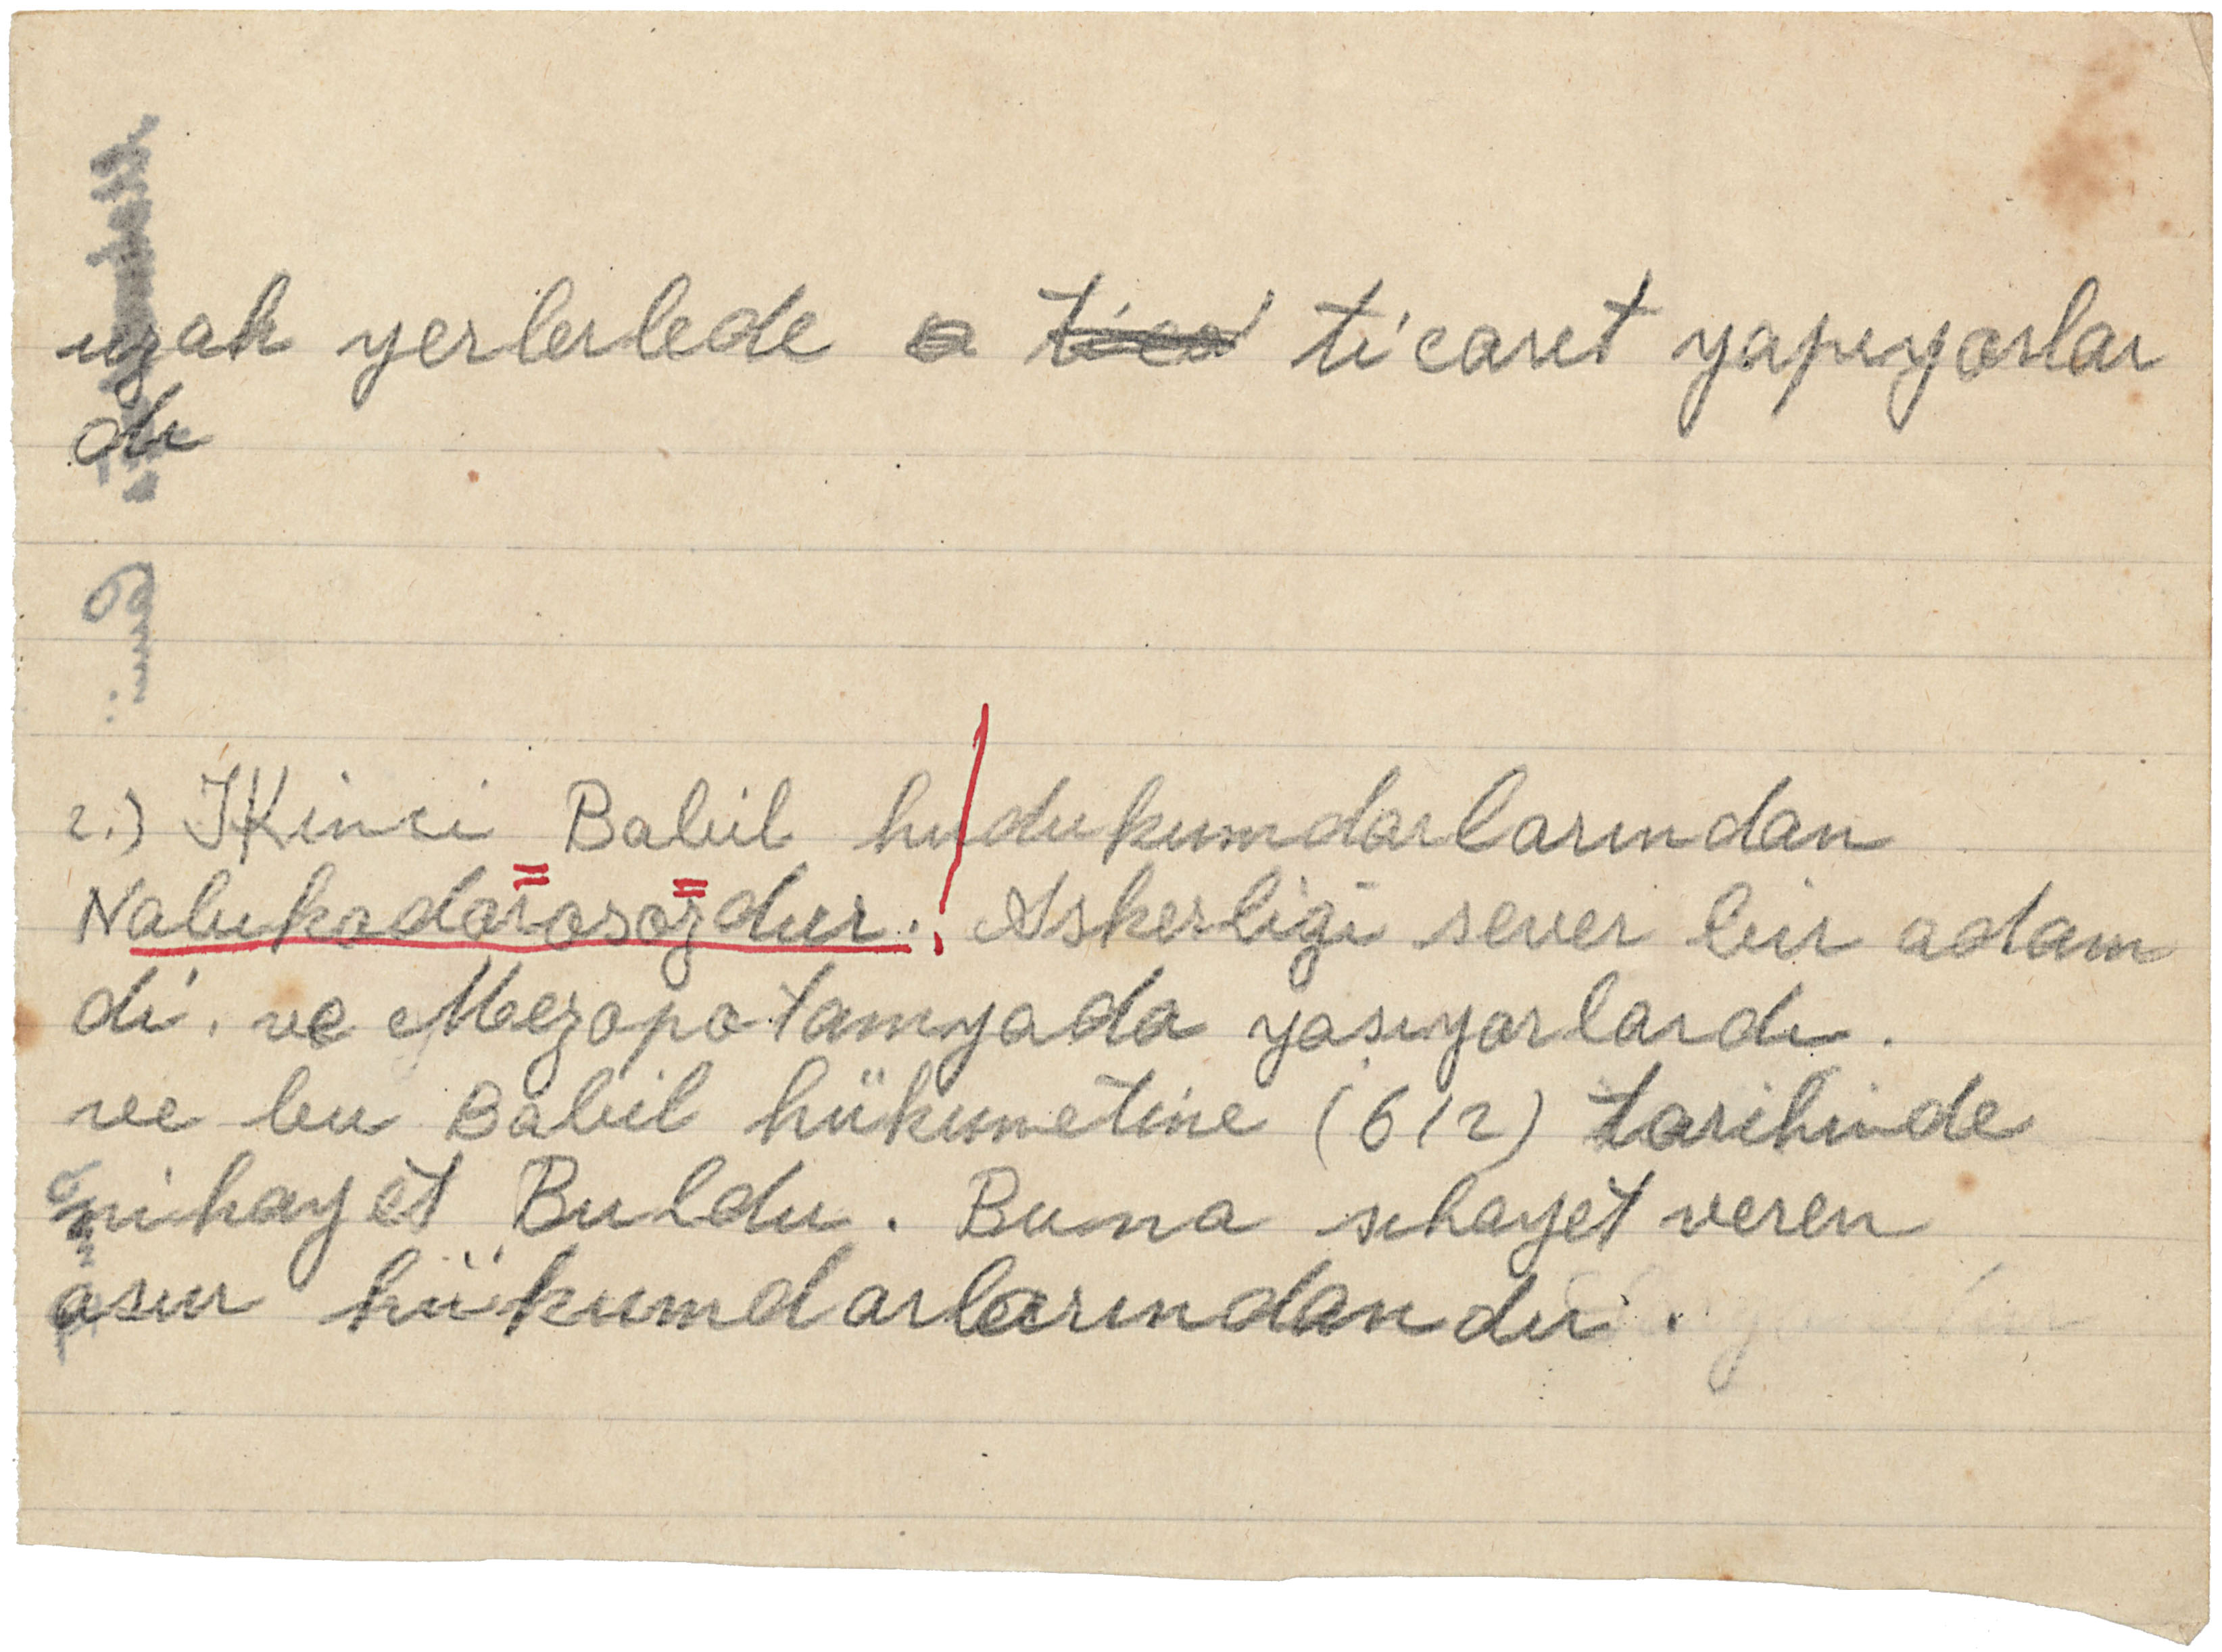 uzak yerlerlede a tica ticaret yapıyorlar
dı
2.) İKinci Babil hudukumdarlarından
Nabukodorosozdur. Askerliği sever bir adam
di. ve Mezopotamyada yasıyorlardı.
ve bu Babil hükumetine (612) tarihinde
nihayet Buldu. Buna nihayet veren
asur hükumdarlarındandır.